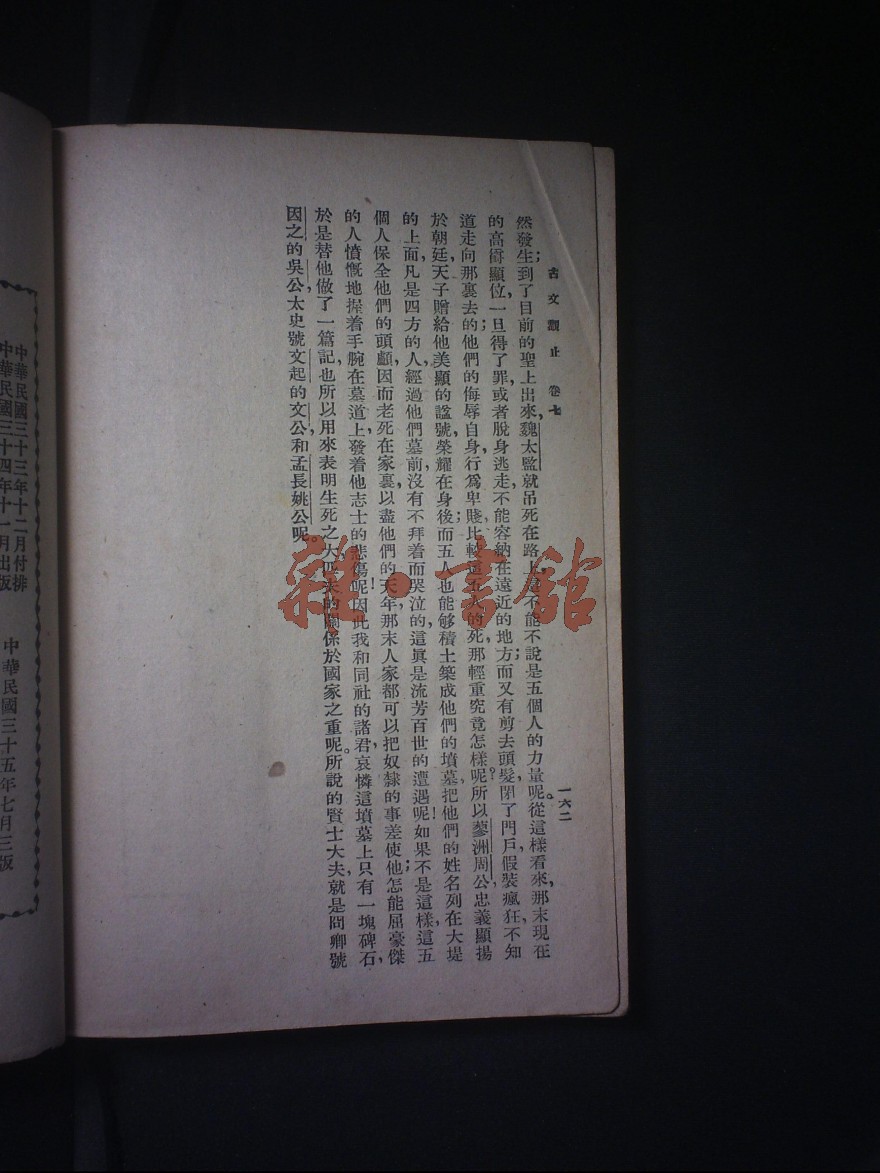 古文觀止 卷七
一六二
然發生；到了目前的聖上出來，魏太監就吊死在路上，還不能不說是五個人的力量呢。從這樣看來，那末現在
的高爵顯位，一旦得了罪，或者脫身逃走，不能容納在遠近的地方；而又有剪去頭髮，閉了門戶，假裝瘋狂，不知
道走向那裏去的；他們的侮辱自身，行為卑賤，比較這五人的死，那輕重究竟怎樣呢？所以蓼洲周公，忠義顯揚
於朝廷，天子贈給他美顯的諡號，榮耀在身後；而五人也能够積土築成他們的墳墓，把他們的姓名列在大堤
的上面，凡是四方的人，經過他們墓前，沒有不拜着而哭泣的，這眞是流芳百世的遭遇呢！如果不是這樣，這五
個人保全他們的頭顱，因而老死在家裏，以盡他們的天年，那末人家都可以把奴隸的事差使他；怎能屈豪傑
的人，憤慨地握着手腕在墓道上，發着他志士的悲傷呢！因此我和同社的諸君，哀憐這墳墓上只有一塊碑石，
於是替他做了一篇記；也所以用來表明生死之大，匹夫的關係於國家之重呢。所說的賢士大夫，就是冏卿號
因之的吳公，太史號文起的文公，和孟長姚公呢。
雜·書館
中華民國三十三年十二月付排
中華民國三十四年十一月出版
中華民國三十五年七月三版